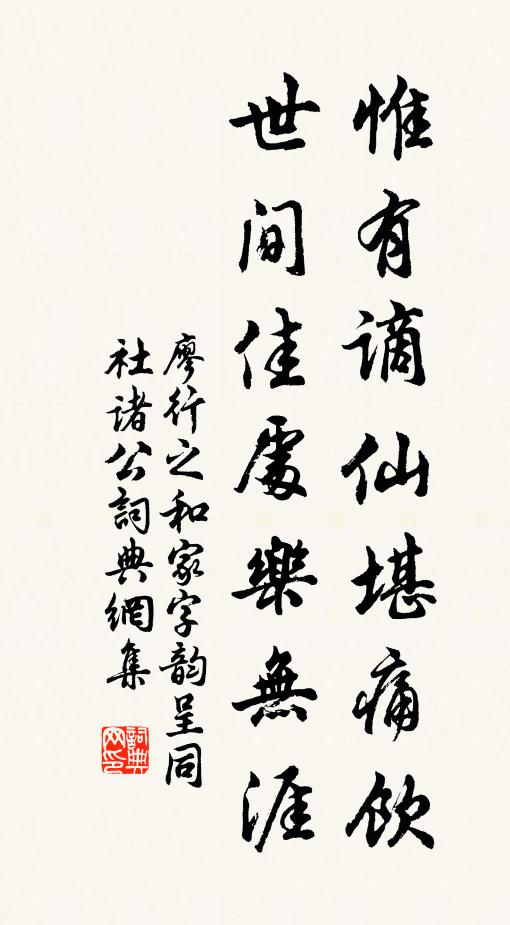 惟有謫仙堪痛飲
世间佳處樂無涯
廖行之和家字韵呈同
社诸公詞典網集
詞典
网印